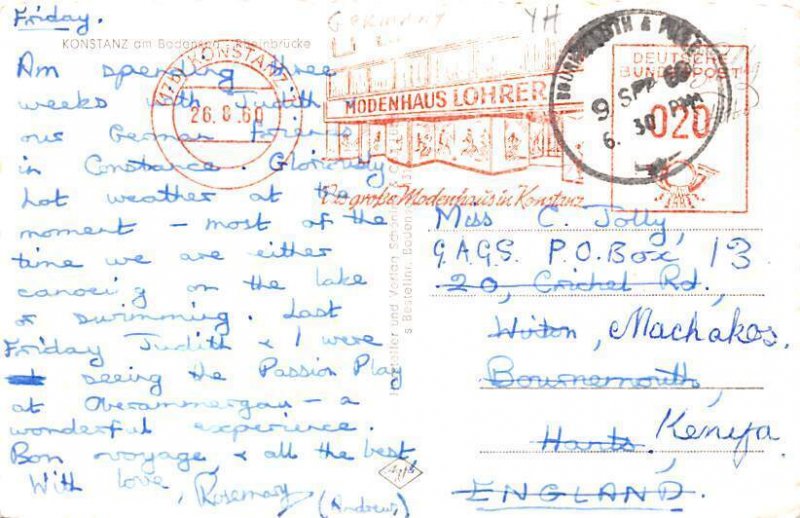 Friday.
Germany
YH
KONSTANZ am Bodensee Rheinbrücke
Am spending three
weeks with Judith &
our German friends
in Constance. Gloriously
hot weather at the
moment – most of the
time we are either
canoeing on the lake
or swimming. Last
Friday Judith & I were
seeing the Passion Play
at Oberammergau – a
wonderful experience.
Bon voyage, & all the best
With love, Rosemary
(Andrews)
KONSTANZ
26.8.60
MODENHAUS LOHRER
Das große Modenhaus in Konstanz
BOURNEMOUTH & POOLE
9 SEP 60
6. 30 PM
DEUTSCHE
BUNDESPOST
020
Hersteller und Verlag
Miss C. Jolly,
G.A.G.S. P.O. Box 13
20, Crichel Rd,
Winton, Machakos.
Bournemouth,
Hants. Kenya
ENGLAND.